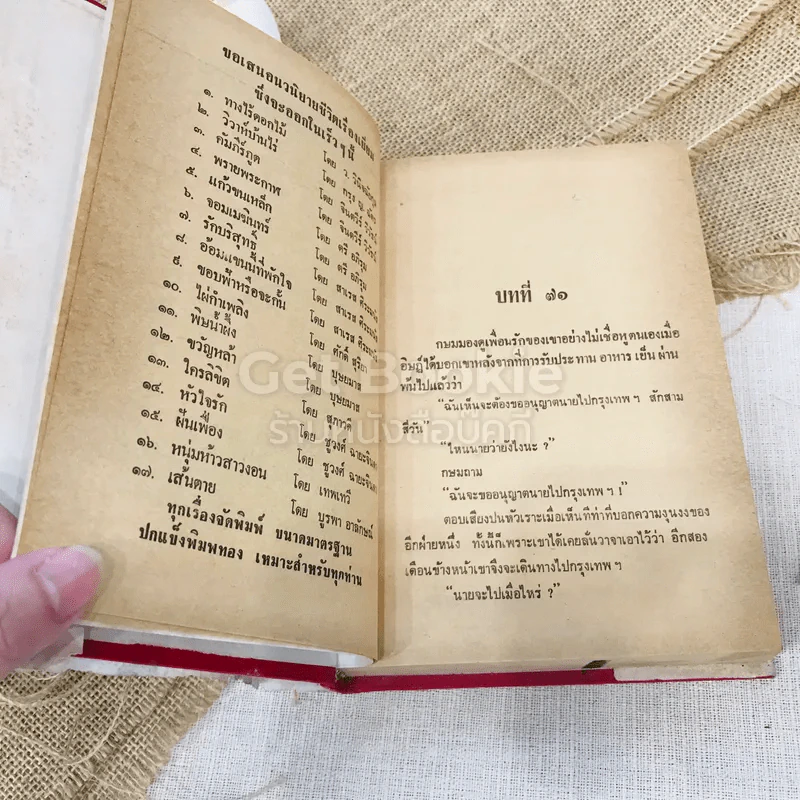 ขอเสนอนวนิยายชีวิตเรื่องเยี่ยม
ซึ่งจะออกในเร็ว ๆ นี้
๑. ทางไร้ดอกไม้ โดย ว. วินิจฉัยกุล
๒. วิวาห์บ้านไร่ โดย กรุง ญ.
๓. คัมภีร์ภูต โดย จินตวีร์ วิวัธน์
๔. พรายพระกาฬ โดย จินตวีร์ วิวัธน์
๕. แก้วขนเหล็ก โดย ตรี อภิรุม
๖. จอมเมฆินทร์ โดย ตรี อภิรุม
๗. รักบริสุทธิ์ โดย สาเรส ศิระมนัส
๘. อ้อมแขนนี้ที่พักใจ โดย สาเรส ศิระมนัส
๙. ขอบฟ้าหรือจะกั้น โดย ศักดิ์ สุริยา
๑๐. ไผ่กำเพลิง โดย บุษยมาส
๑๑. พิษน้ำผึ้ง โดย บุษยมาส
๑๒. ขวัญหล้า โดย สุภาวดี
๑๓. ใครลิขิต โดย ชูวงศ์ ฉายะจินดา
๑๔. หัวใจรัก โดย ชูวงศ์ ฉายะจินดา
๑๕. ฝันเฟื่อง โดย เทพเทวี
๑๖. หนุ่มห้าวสาวงอน โดย บูรพา อาลักษณ์
๑๗. เส้นดาย
ทุกเรื่องจัดพิมพ์ ขนาดมาตรฐาน
ปกแข็งพิมพทอง เหมาะสำหรับทุกท่าน
บทที่ ๗๑
กษมมองดูเพื่อนรักของเขาอย่างไม่เชื่อหูตนเองเมื่อ
อิษฏ์ได้บอกเขาหลังจากที่การรับประทาน อาหาร เย็น ผ่าน
พ้นไปแล้วว่า
“ฉันเห็นจะต้องขออนุญาตนายไปกรุงเทพ ฯ สักสาม
สี่วัน”
“ไหนนายว่ายังไงนะ ?”
กษมถาม
“ฉันจะขออนุญาตนายไปกรุงเทพ ฯ !”
ตอบเสียงปนหัวเราะเมื่อเห็นทีท่าที่บอกความงุนงงของ
อีกฝ่ายหนึ่ง ทั้งนี้ก็เพราะเขาได้เคยลั่นวาจาเอาไว้ว่า อีกสอง
เดือนข้างหน้าเขาจึงจะเดินทางไปกรุงเทพ ฯ
“นายจะไปเมื่อไหร่ ?”
Get Bookie
ร้านหนังสือบุคกี้